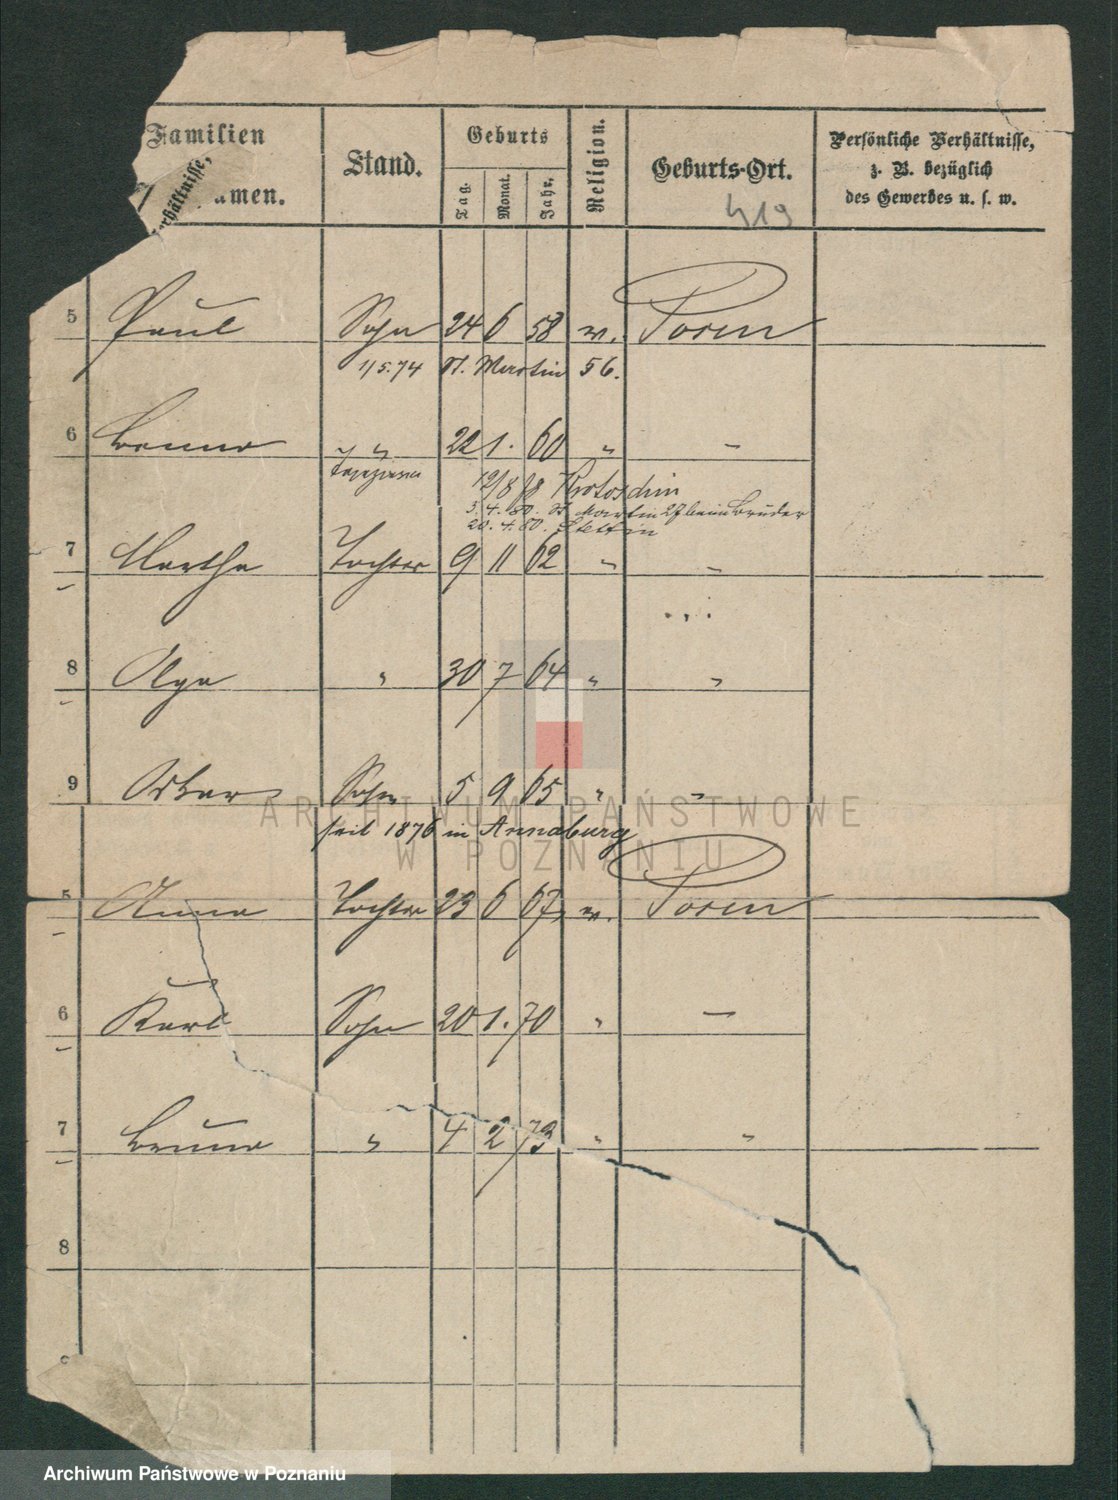 Familien
amen.
rhältnisse,
Stand.
Geburts
Tag.
Monat.
Jahr.
Religion.
Geburts-Ort.
419
Persönliche Verhältnisse,
z. B. bezüglich
des Gewerbes u. s. w.
5 Paul Sohn 24 6 58 ev. Posen
1/5.74 St. Martin 56.
6 Benno " " 22 1. 60 " —
12/8 78 Krotoschin
3.4.80. St Martin 27 beim Bruder
20.4.80. Stettin
7 Martha Tochter 9 11 62 " "
8 Olga " 30 7 64 " "
9 Oskar Sohn 5 9 65 " "
seit 1876 in Annaburg
5 Anna Tochter 23 6 67 ev. Posen
6 Karl Sohn 20 1. 70 " —
7 Bruno " 4 2 73 " "
8
ARCHIWUM PAŃSTWOWE
W POZNANIU
Archiwum Państwowe w Poznaniu